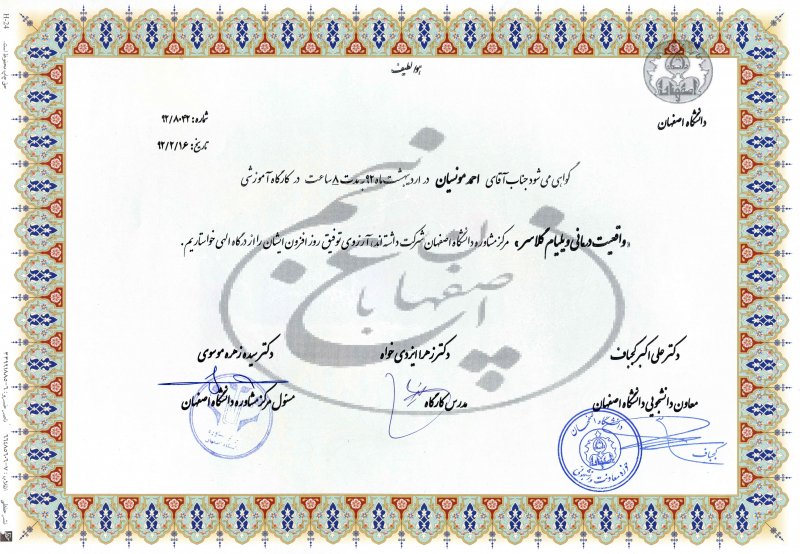 هواللطیف
دانشگاه اصفهان
شماره: ۹۲/۸۰۴۲
تاریخ: ۹۲/۲/۱۶
گواهی می شود جناب آقای احمد مونسیان در اردیبهشت ماه ۹۲ به مدت ۸ ساعت در کارگاه آموزشی
«واقعیت درمانی ویلیام گلاسر» مرکز مشاوره دانشگاه اصفهان شرکت داشته اند، آرزوی توفیق روز افزون ایشان را از درگاه الهی خواستاریم.
دکتر علی اکبر کجباف
معاون دانشجویی دانشگاه اصفهان
دکتر زهرا ایزدی خواه
مدرس کارگاه
دکتر سیده زهره موسوی
مسئول مرکز مشاوره دانشگاه اصفهان
دانشگاه اصفهان
حوزه معاونت دانشجویی
کجباف
H-24